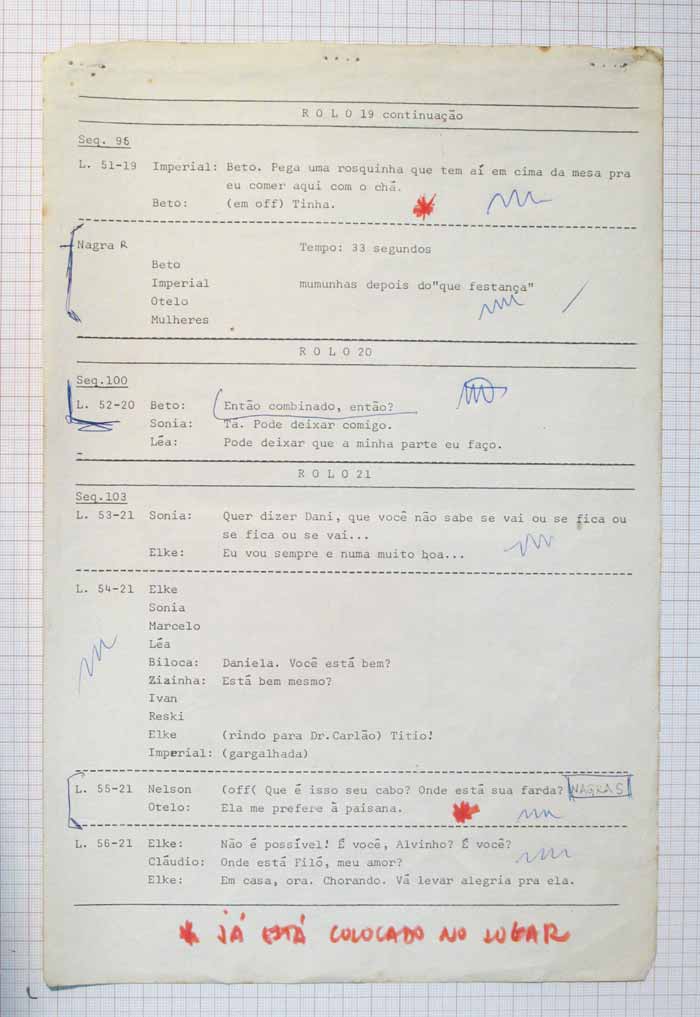 R O L O 19 continuação
Seq. 96
L. 51-19 Imperial: Beto. Pega uma rosquinha que tem aí em cima da mesa pra
eu comer aqui com o chá.
Beto: (em off) Tinha.
Nagra R Tempo: 33 segundos
Beto
Imperial mumunhas depois do"que festança"
Otelo
Mulheres
R O L O 20
Seq.100
L. 52-20 Beto: Então combinado, então?
Sonia: Tá. Pode deixar comigo.
Léa: Pode deixar que a minha parte eu faço.
R O L O 21
Seq.103
L. 53-21 Sonia: Quer dizer Dani, que você não sabe se vai ou se fica ou
se fica ou se vai...
Elke: Eu vou sempre e numa muito boa...
L. 54-21 Elke
Sonia
Marcelo
Léa
Biloca: Daniela. Você está bem?
Ziainha: Está bem mesmo?
Ivan
Reski
Elke (rindo para Dr.Carlão) Titio!
Imperial: (gargalhada)
L. 55-21 Nelson (off( Que é isso seu cabo? Onde está sua farda? NAGRA S
Otelo: Ela me prefere à paisana.
L. 56-21 Elke: Não é possível! É você, Alvinho? É você?
Cláudio: Onde está Filó, meu amor?
Elke: Em casa, ora. Chorando. Vá levar alegria pra ela.
* JÁ ESTÁ COLOCADO NO LUGAR